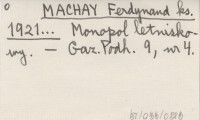 o MACHAY Ferdynand ks.
1921... Monopol letnisko-
wy. — Gaz. Podh. 9, nr 4.